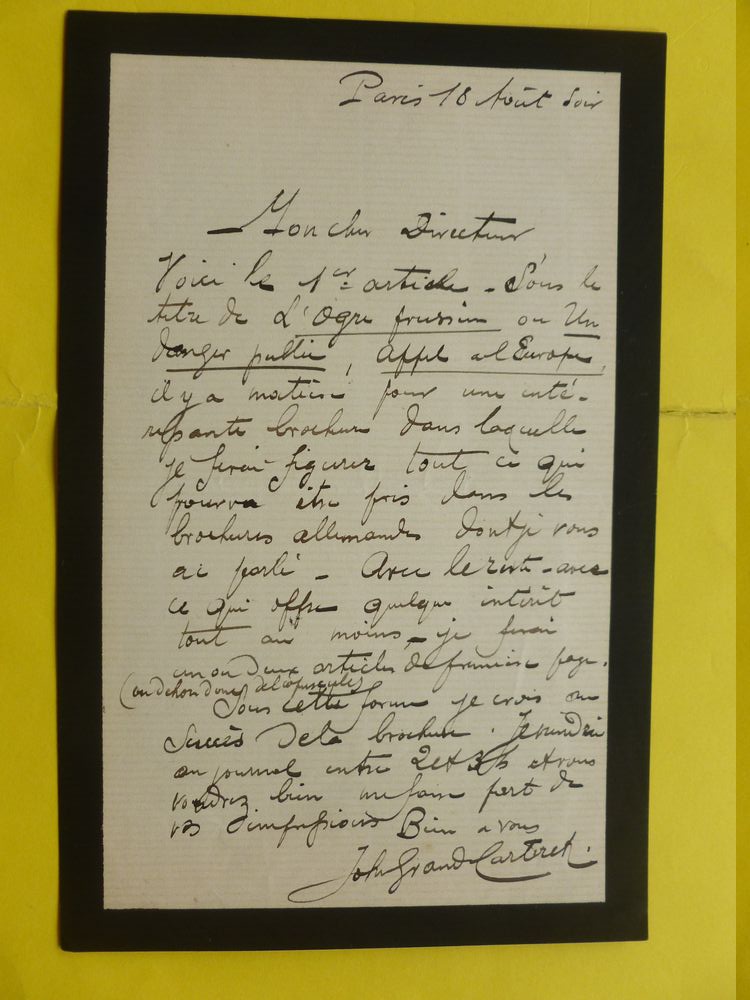 Paris 18 Août soir
Mon cher Directeur
Voici le 1er article - Sous le
titre de L'Ogre prussien ou Un
danger public, Appel à l'Europe,
il y a matière pour une inté-
ressante brochure dans laquelle
je ferai figurer tout ce qui
pourra être pris dans les
brochures allemandes dont je vous
ai parlé - Avec le reste - avec
ce qui offre quelque intérêt
tout au moins, - je ferai
un ou deux articles de première page.
(en dehors donc de l'opuscule)
Sous cette forme je crois au
succès de la brochure. Je viendrai
au journal entre 2 et 3h et vous
voudrez bien me faire part de
vos impressions Bien à vous
John Grand-Carteret.